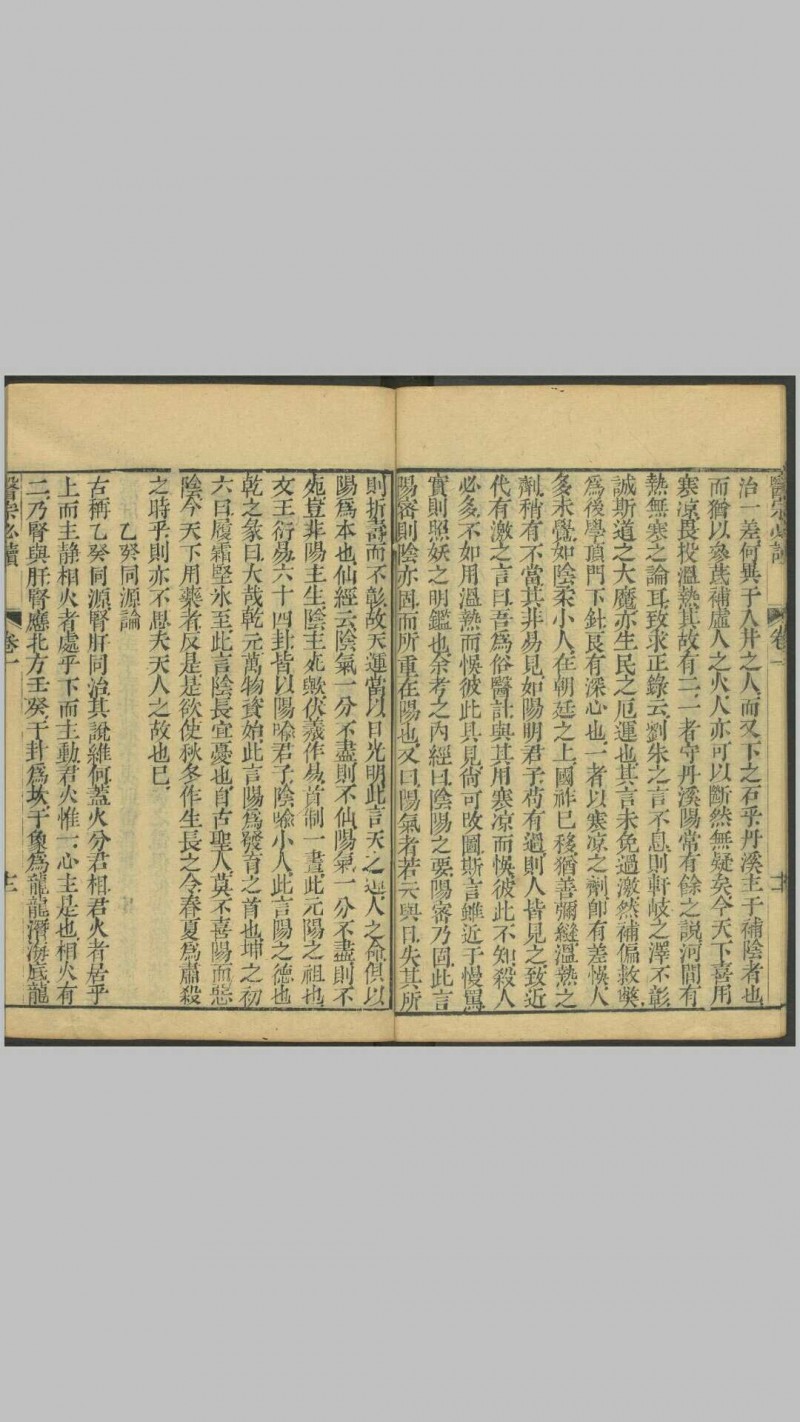 醫宗必讀
卷一
治一差何異于入井之人而又下之石乎丹溪主于補陰者也
而猶以參芪補虛人之火人亦可以斷然無疑矣今天下喜用
寒凉畏投溫熱其故有二一者守丹溪陽常有餘之說河間有
熱無寒之論耳致求正錄云劉朱之言不息則軒岐之澤不彰
誠斯道之大魔亦生民之厄運也其言未免過激然補偏救弊
爲後學頂門下針良有深心也一者以寒凉之劑卽有差悞人
多未覺如陰柔小人在朝廷之上國祚已移猶善彌縫溫熱之
劑稍有不當其非易見如陽明君子苟有過則人皆見之致近
代有激之言曰吾爲俗醫計與其用寒凉而悞彼此不知殺人
必多不如用溫熱而悞彼此具見尙可改圖斯言雖近于慢罵
實則照妖之明鑑也余考之內經曰陰陽之要陽密乃固此言
陽密則陰亦固而所重在陽也又曰陽氣者若天與日失其所
則折壽而不彰故天運當以日光明此言天之運人之命俱以
陽爲本也仙經云陰氣一分不盡則不仙陽氣一分不盡則不
死豈非陽主生陰主死歟伏羲作易首制一畫此元陽之祖也
文王衍易六十四卦皆以陽喻君子陰喻小人此言陽之德也
乾之彖曰大哉乾元萬物資始此言陽爲發育之首也坤之初
六曰履霜堅氷至此言陰長宜憂也自古聖人莫不喜陽而惡
陰今天下用藥者反是是欲使秋冬作生長之令春夏爲肅殺
之時乎則亦不思夫天人之故也已
乙癸同源論
古稱乙癸同源腎肝同治其說維何蓋火分君相君火者居乎
上而主静相火者處乎下而主動君火惟一心主是也相火有
二乃腎與肝腎應北方壬癸于卦爲坎于象爲龍龍潛海底龍
醫宗必讀
卷一